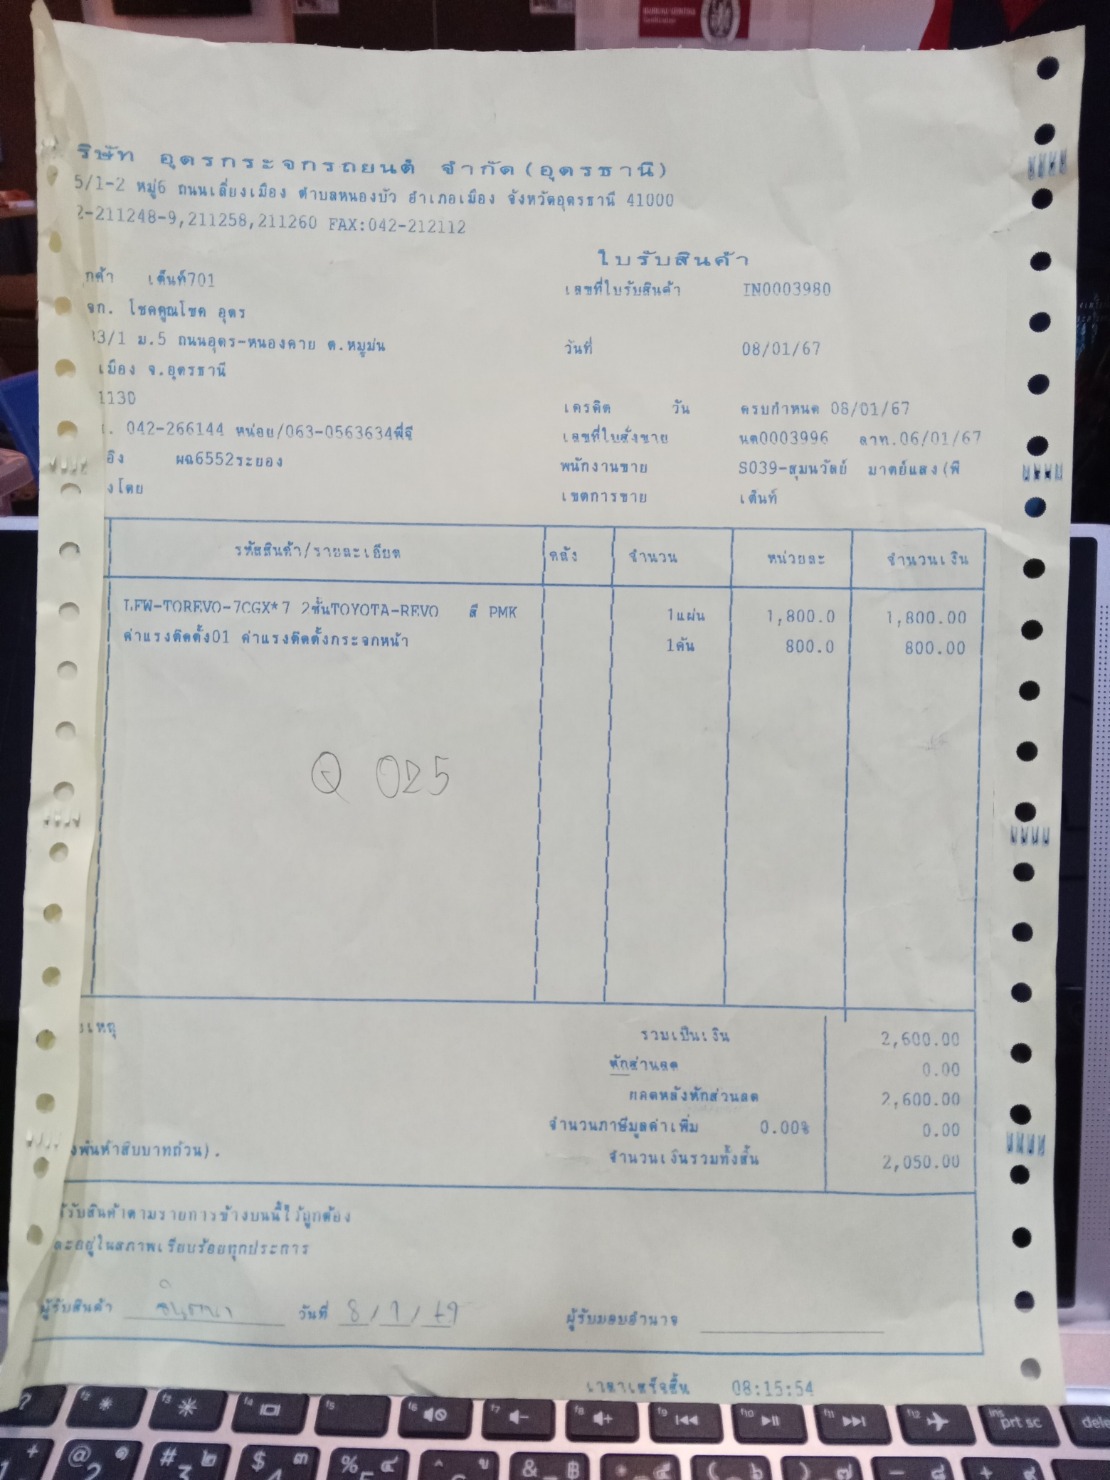 BUREAU VERITAS
Certification
ริษัท อุดรกระจกรถยนต์ จำกัด(อุดรธานี)
5/1-2 หมู่6 ถนนเลี่ยงเมือง ตำบลหนองบัว อำเภอเมือง จังหวัดอุดรธานี 41000
2-211248-9,211258,211260 FAX:042-212112
ใบรับสินค้า
กค้า เต็นท์701
เลขที่ใบรับสินค้า IN0003980
จก. โชคคูณโชค อุดร
33/1 ม.5 ถนนอุดร-หนองคาย ต.หมูม่น
วันที่ 08/01/67
เมือง จ.อุดรธานี
1130
เครดิต วัน ครบกำหนด 08/01/67
. 042-266144 หน่อย/063-0563634พี่จี
เลขที่ใบสั่งขาย นค0003996 ลาท.06/01/67
อิง ผฉ6552ระยอง
พนักงานขาย S039-สุมนวัลย์ มาตย์แสง(พี
งโดย
เขตการขาย เต็นท์
รหัสสินค้า/รายละเอียด คลัง จำนวน หน่วยละ จำนวนเงิน
LFW-TOREVO-7CGX*7 2ชั้นTOYOTA-REVO สี PMK 1แผ่น 1,800.0 1,800.00
ค่าแรงติดตั้ง01 ค่าแรงติดตั้งกระจกหน้า 1คัน 800.0 800.00
Q 025
เหตุ
รวมเป็นเงิน 2,600.00
หักส่วนลด 0.00
ยอดหลังหักส่วนลด 2,600.00
จำนวนภาษีมูลค่าเพิ่ม 0.00% 0.00
งพันห้าสิบบาทถ้วน).
จำนวนเงินรวมทั้งสิ้น 2,050.00
รับสินค้าตามรายการข้างบนนี้ไว้ถูกต้อง
ละอยู่ในสภาพเรียบร้อยทุกประการ
ผู้รับสินค้า จินตนา วันที่ 8/1/67
ผู้รับมอบอำนาจ
เวลาเสร็จสิ้น 08:15:54
prt sc